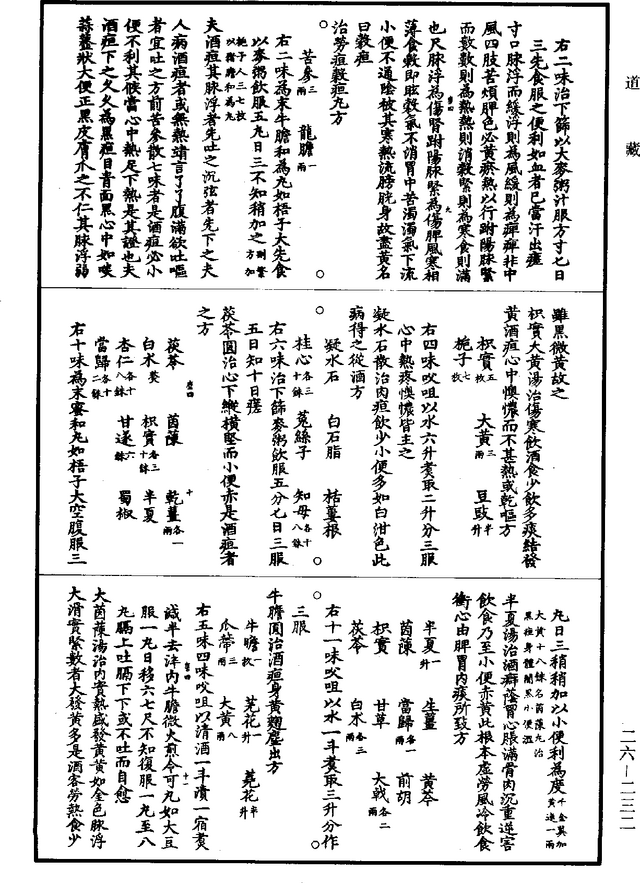 道藏
右二味治下篩以大麥粥汁服方寸七日
三先食服之便利如血者已當汗出瘥
寸口脉浮而緩浮則為風緩則為痺痺非中
風四肢苦煩脾色必黃瘀熱以行趺陽脉緊
而數數則為熱熱則消穀緊則為寒食則滿
也尺脉浮為傷腎趺陽脉緊為傷脾風寒相
薄食穀即眩穀氣不消胃中苦濁濁氣下流
小便不通陰被其寒熱流膀胱身故盡黃名
曰穀疸
治勞疸穀疸丸方
苦參三兩 龍膽一兩
右二味為末牛膽和為丸如梧子大先食
以麥粥飲服五丸日三不知稍加之
夫酒疸其脉浮者先吐之沉弦者先下之夫
人病酒疸者或無熱靖言了了腹滿欲吐嘔
者宜吐之方前苦參散七味者是酒疸必小
便不利其候當心中熱足下熱是其證也夫
酒疸下之久久為黑疸目青面黑心中如噉
蒜虀狀大便正黑皮膚爪之不仁其脉浮弱
雖黑微黃故之
枳實大黃湯治傷寒飲酒食少飲多痰結發
黃酒疸心中懊憹而不甚熱或乾嘔方
枳實五枚 大黃三兩 豆豉半升
梔子七枚
右四味㕮咀以水六升煮取二升分三服
心中熱疼懊憹皆主之
凝水石散治肉疸飲少小便多如白泔色此
病得之從酒方
凝水石 白石脂 栝蔞根
桂心各三十銖 菟絲子 知母各十八銖
右六味治下篩麥粥飲服五分七日三服
五日知十日瘥
茯苓圓治心下縱橫堅而小便赤是酒疸者
之方
茯苓 茵蔯 乾薑各一兩
白朮熬 枳實各三十銖 半夏
杏仁各十八銖 甘遂六銖 蜀椒
當歸各十二銖
右十味為末蜜和丸如梧子大空腹服三
丸日三稍稍加以小便利為度千金翼加黃連一兩
大黃十八銖名茵蔯丸治
黑疸身體闇黑小便澀
半夏湯治酒癖䕃胃心脹滿骨肉沉重逆害
飲食乃至小便赤黃此根本虛勞風冷飲食
衝心由脾胃內痰所致方
半夏一升 生薑 黃芩
茵蔯 當歸各一兩 前胡
枳實 甘草 大戟各二兩
茯苓 白朮各三兩
右十一味㕮咀以水一斗煮取三升分作
三服
牛膽圓治酒疸身黃麴塵出方
牛膽一枚 芫花一升 蕘花半升
瓜蒂三兩 大黃八兩
右五味四味㕮咀以清酒一斗漬一宿煮
減半去滓內牛膽微火煎令可丸如大豆
服一丸日移六七尺不知復服一丸至八
丸膈上吐膈下下或不吐而自愈
大茵蔯湯治內實熱盛發黃黃如金色脉浮
大滑實緊數者大發黃多是酒客勞熱食少
二六—二三二